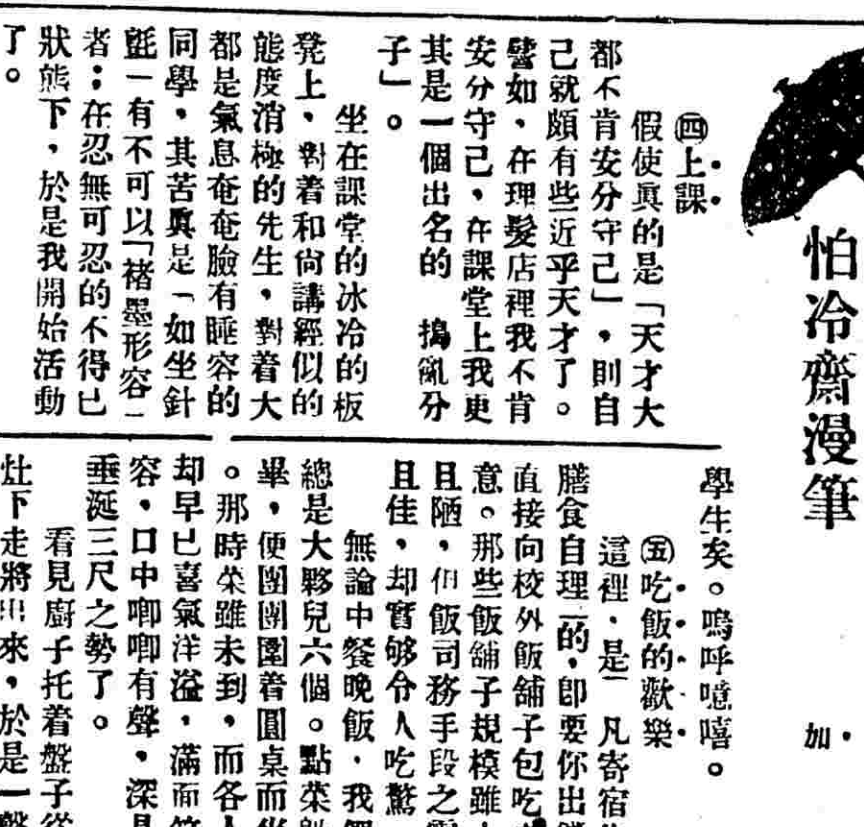 怕冷齋漫筆
加・
㊃上課
假使眞的是「天才大
都不肯安分守己」，則自
己就頗有些近乎天才了。
譬如、在理髮店裡我不肯
安分守己，在課堂上我更
其是一個出名的 搗亂分
子」。
坐在課堂的冰冷的板
凳上，對着和尙講經似的
態度消極的先生，對着大
都是氣息奄奄臉有睡容的
同學，其苦眞是「如坐針
氈」有不可以「褚墨形容」
者；在忍無可忍的不得已
狀態下，於是我開始活動
了。
學生矣。嗚呼噫嘻。
㊄吃飯的歡樂
這裡，是 凡寄宿
膳食自理」的，卽要你出
直接向校外飯舖子包吃
意。那些飯舖子規模雖
且陋，但飯司務手段之
且佳，却實够令人吃驚
無論中餐晚飯，我
總是大夥兒六個。點菜
畢，便團團圍着圓桌而坐
。那時菜雖未到，而各人
却早已喜氣洋溢，滿面笑
容，口中唧唧有聲，深具
垂涎三尺之勢了。
看見廚子托着盤子從
灶下走將出來，於是一聲